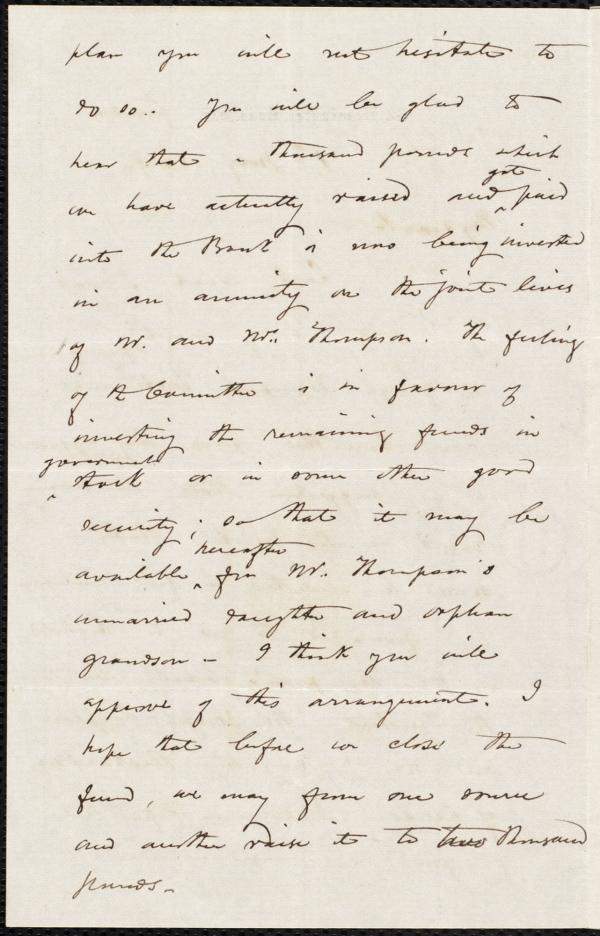 plan you will not hesitate to
do so.. You will be glad to
hear that a thousand pounds which
we have actually raised and ^got paid
into the Bank is now being invested
in an annuity on the joint lives
of Mr. and Mrs. Thompson. The feeling
of the Committee is in favour of
investing the remaining funds in
^government stock or in some other good
security; so that it may be
available ^hereafter for Mr. Thompson's
unmarried daughter and orphan
grandson - I think you will
approve of this arrangement. I
hope that before we close the
fund, we may from one source
and another raise it to two thousand
pounds -